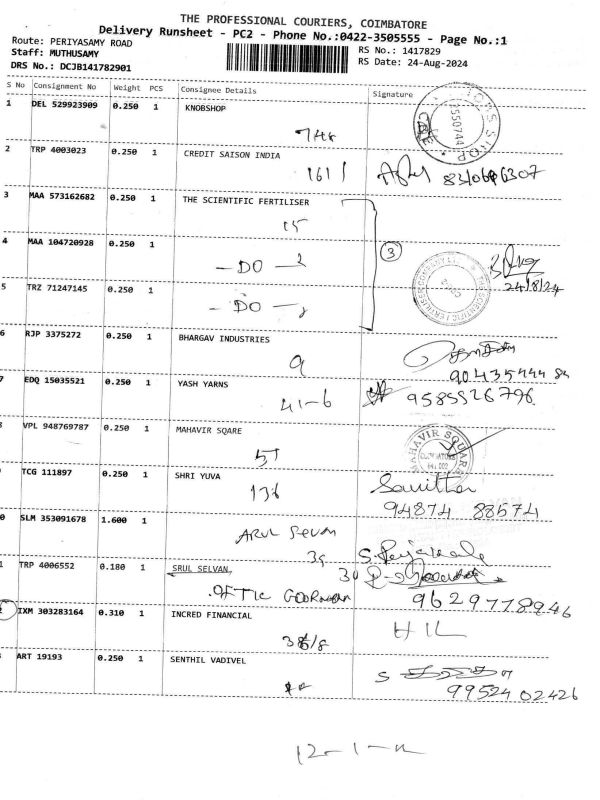 THE PROFESSIONAL COURIERS, COIMBATORE
Delivery Runsheet - PC2 - Phone No.:0422-3505555 - Page No.:1
Route: PERIYASAMY ROAD
Staff: MUTHUSAMY
DRS No.: DCJB141782901
RS No.: 1417829
RS Date: 24-Aug-2024
S No Consignment No Weight PCS Consignee Details Signature
1 DEL 529923909 0.250 1 KNOBSHOP
748
2 TRP 4003023 0.250 1 CREDIT SAISON INDIA
1611
3 MAA 573162682 0.250 1 THE SCIENTIFIC FERTILISER
15
3
4 MAA 104720928 0.250 1
- DO - 2
24/8/24
5 TRZ 71247145 0.250 1
- DO -
6 RJP 3375272 0.250 1 BHARGAV INDUSTRIES
9
7 EDQ 15035521 0.250 1 YASH YARNS
41-6 9585526796
VPL 948769787 0.250 1 MAHAVIR SQARE
MAHAVIR SQUARE
51
TCG 111897 0.250 1 SHRI YUVA
136 Savitha
94874 88574
0 SLM 353091678 1.600 1
ARUL Selvan
39
1 TRP 4006552 0.180 1 SRUL SELVAN,
30
9629778946
2 IXM 303283164 0.310 1 INCRED FINANCIAL
HIL
ART 19193 0.250 1 SENTHIL VADIVEL
S
99524 02426